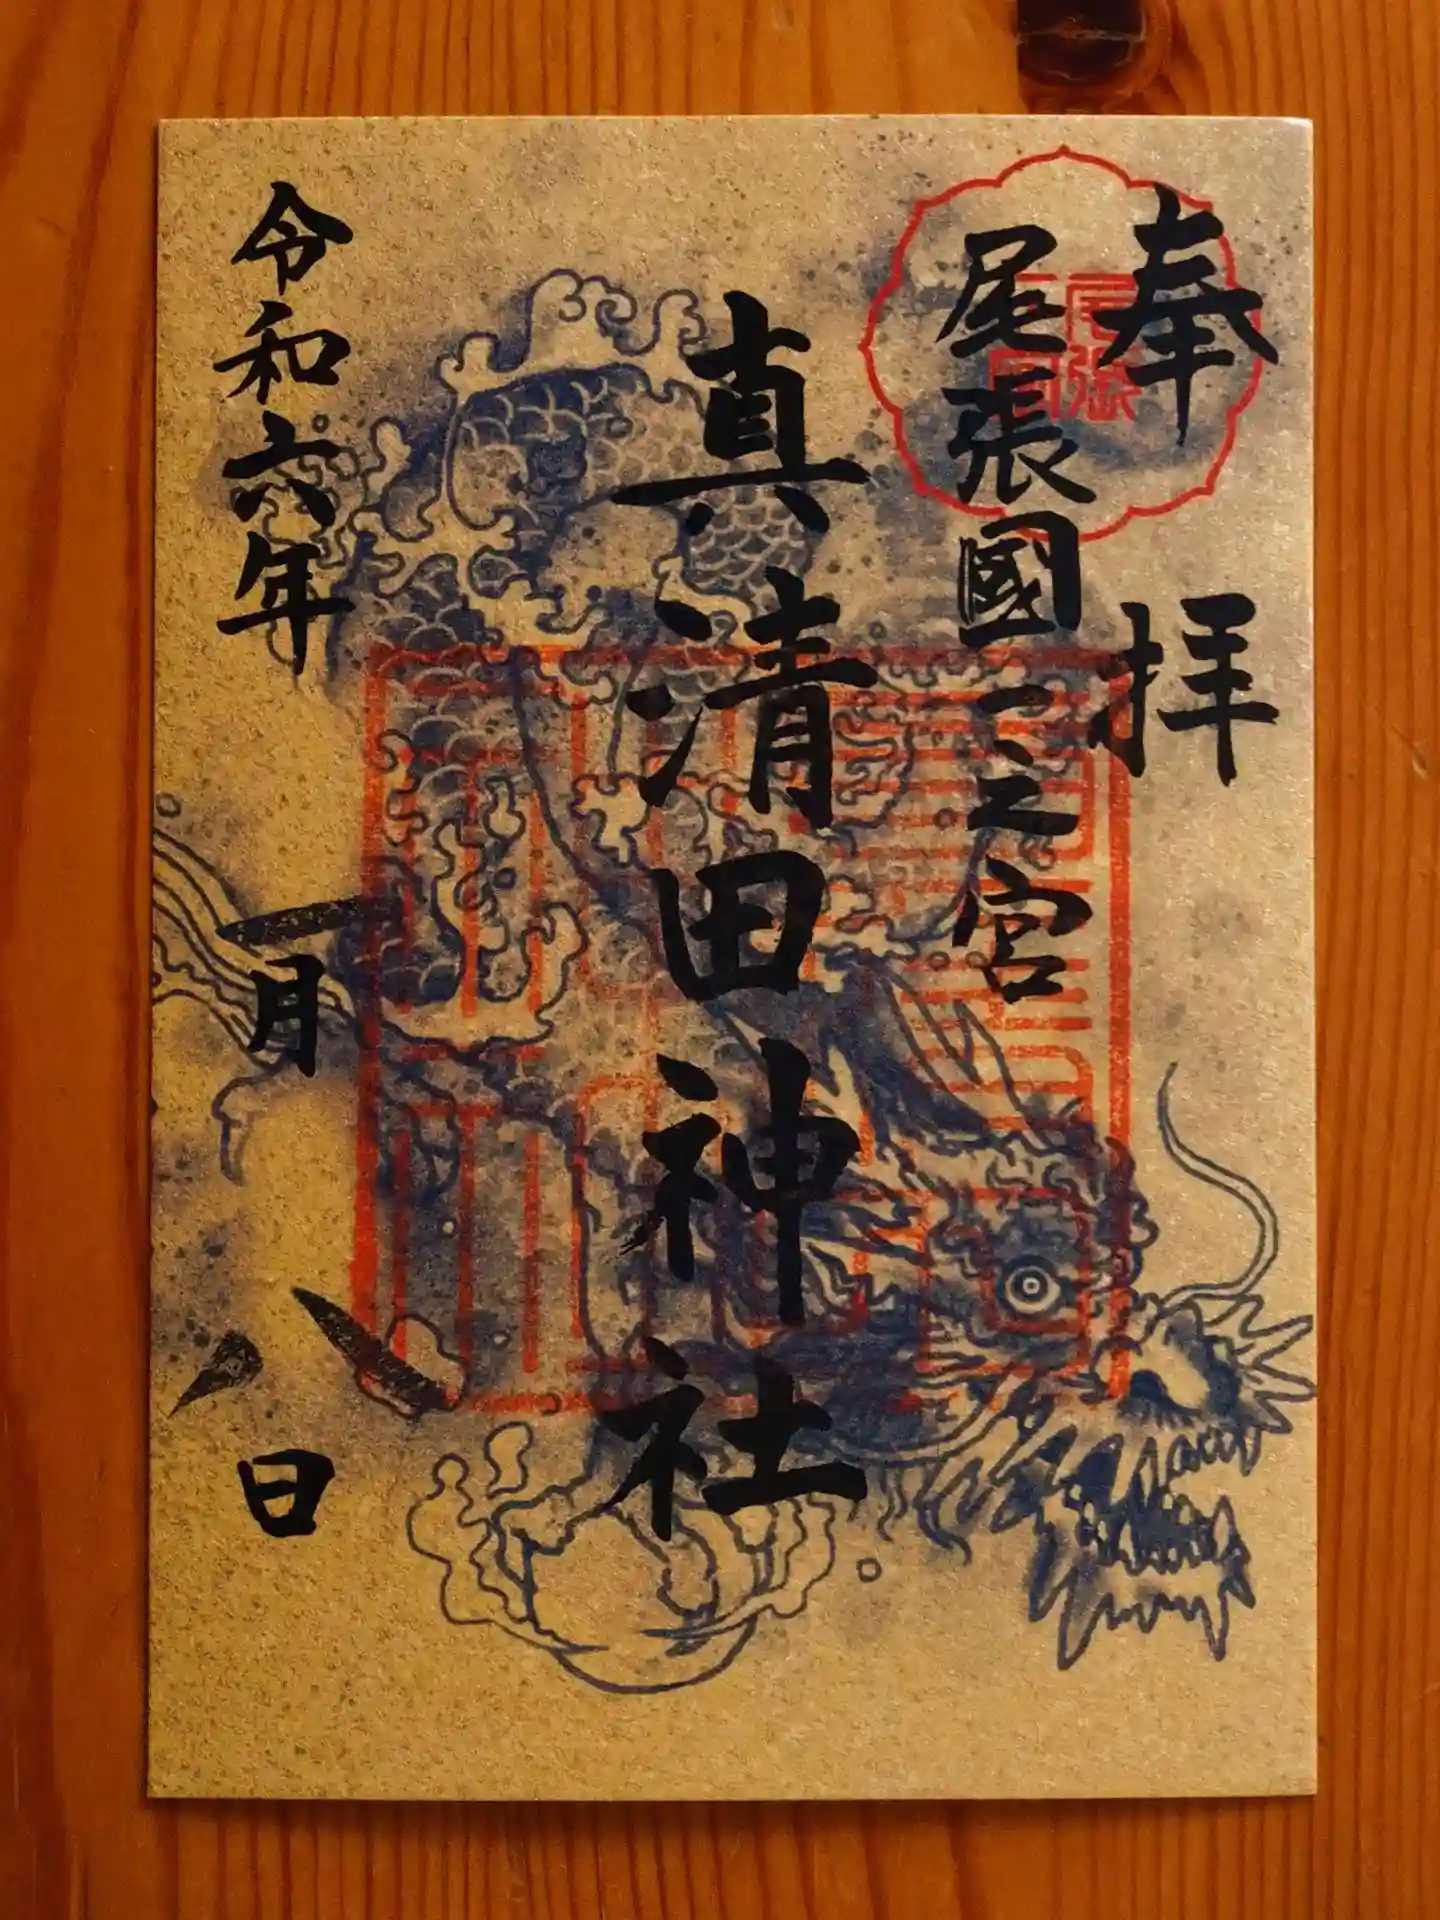 奉拝
尾張國一之宮
真清田神社
令和六年
一月八日